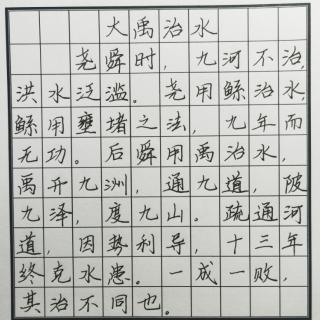 大禹治水
尧舜时，九河不治，
洪水泛滥。尧用鲧治水，
鲧用壅堵之法，九年而
无功。后舜用禹治水，
禹开九洲，通九道，陂
九泽，度九山。疏通河
道，因势利导，十三年
终克水患。一成一败，
其治不同也。